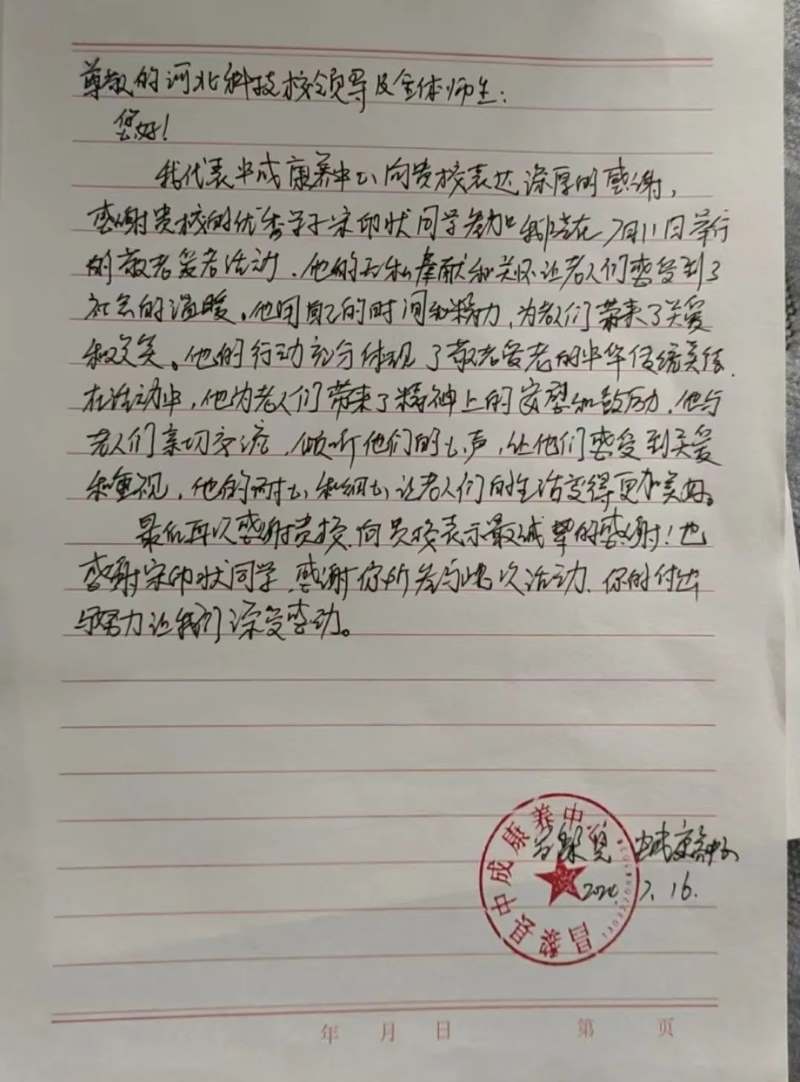 尊敬的河北科技校领导及全体师生:
您好!
我代表中成康养中心向贵校表达深厚的感谢,
感谢贵校的优秀学子宋印状同学参加我院在7月11日举行
的敬老爱老活动,他的无私奉献和关怀让老人们感受到了
社会的温暖。他用自己的时间和精力,为老人们带来了关爱
和欢笑。他的行动充分体现了敬老爱老的中华传统美德.
在活动中,他为老人们带来了精神上的安慰和鼓励,他与
老人们亲切交流,倾听他们的心声,让他们感受到关爱
和重视,他的耐心和细心让老人们的生活变得更加美好。
最后再次感谢贵校,向贵校表示最诚挚的感谢!也
感谢宋印状同学,感谢你所参与此次活动、你的付出
与努力让我们深受感动。
昌黎县中成康养中心
昌黎县
7.16.
年 月 日 第 页